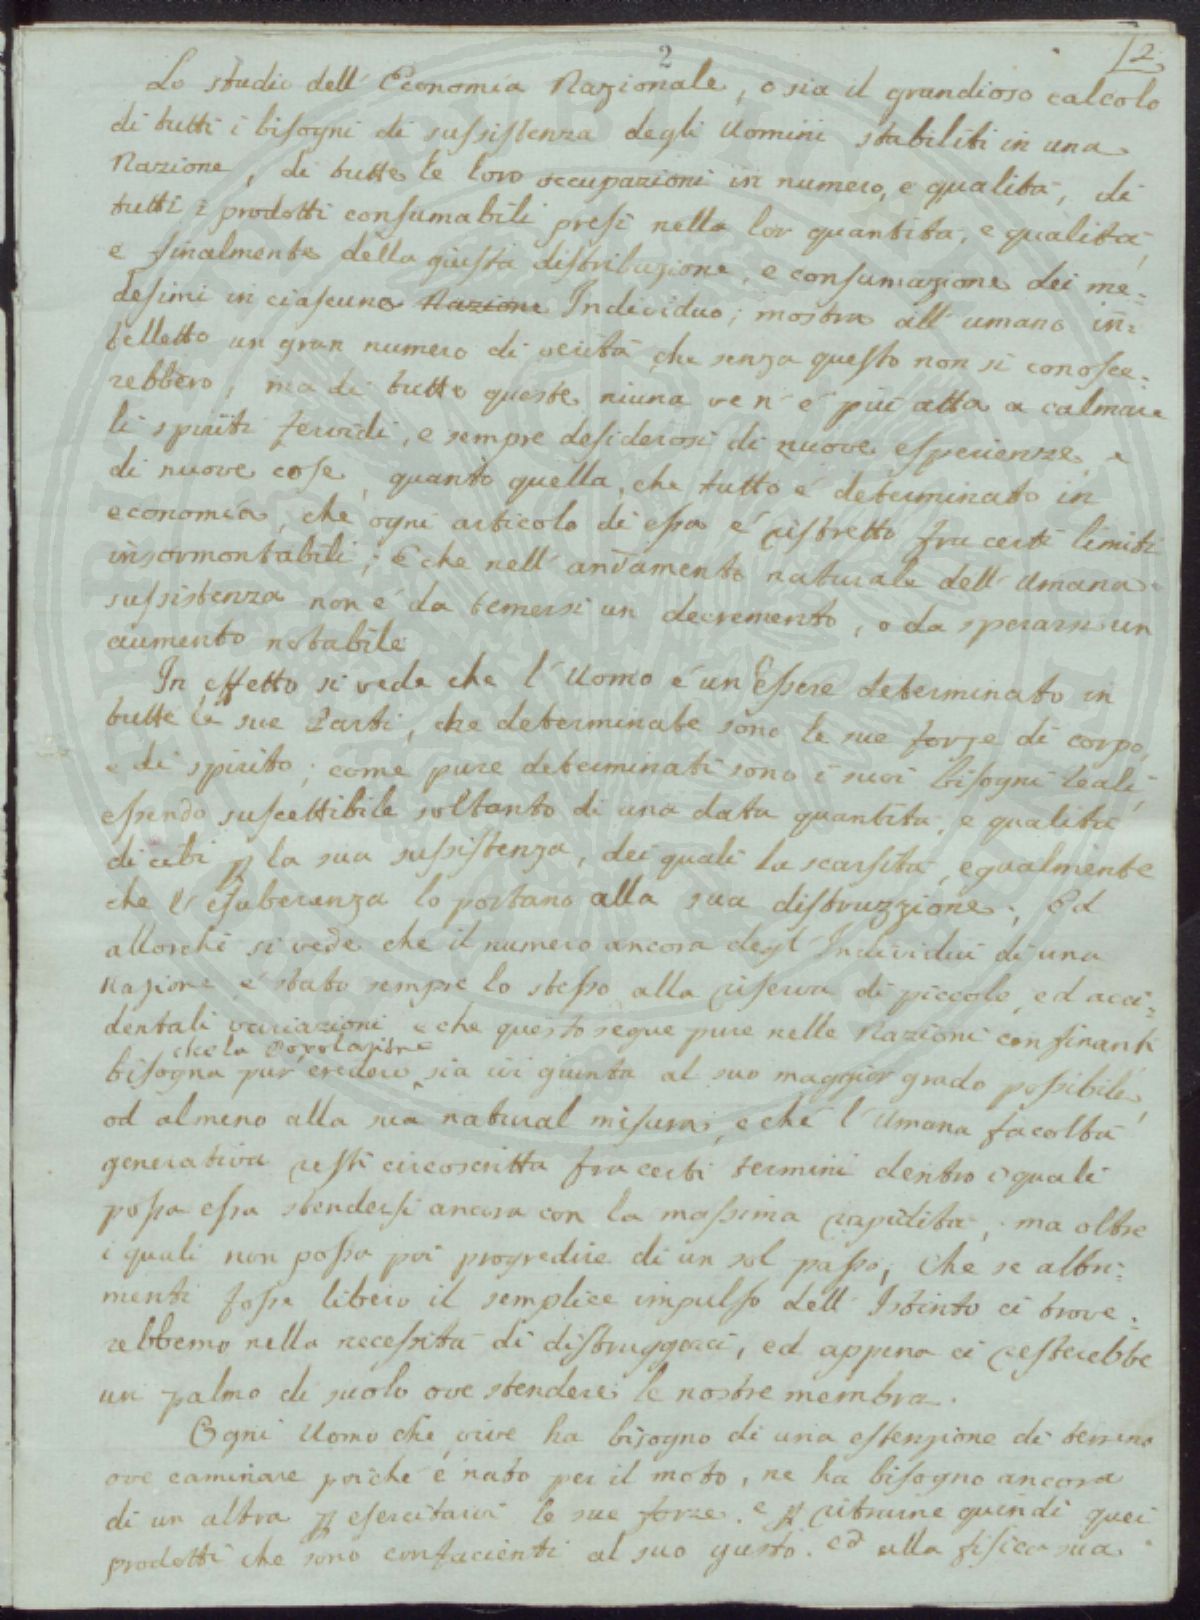 2
2
Lo studio dell' Economia Nazionale, o sia il grandioso calcolo
di tutti i bisogni di sussistenza degli Uomini stabiliti in una
Nazione, di tutte le loro occupazioni in numero, e qualità, di
tutti i prodotti consumabili presi nella lor quantità, e qualità,
e finalmente della giusta distribuzione, e consumazione dei me=
desimi in ciascuno Nazione Individuo; mostra all' umano in=
telletto un gran numero di verità che senza questo non si conosce=
rebbero, ma di tutte queste niuna ve n' é piú atta a calmare
li spiriti fervidi, e sempre desiderosi di nuove esperienze, e
di nuove cose, quanto quella, che tutto é determinato in
economia, che ogni articolo di essa é ristretto fra certi limiti
insormontabili; e che nell' andamento naturale dell' Umana
sussistenza non é da temersi un decremento, o da sperarsi un
aumento notabile
In effetto si vede che l' Uomo é un Essere determinato in
tutte le sue Parti, che determinate sono le sue forze di corpo,
e di spirito; come pure determinati sono i suoi bisogni reali,
essendo suscettibile soltanto di una data quantità, e qualità
di cibi p la sua sussistenza, dei quali la scarsità, egualmente
che l' esuberanza lo portano alla sua distruzzione; Ed
allorchè si vede che il numero ancora degl' Individui di una
Nazione é stato sempre lo stesso alla riserva di piccole, ed acci=
dentali variazioni e che questo segue pure nelle Nazioni confinanti
che la Popolazione
bisogna pur credere sia ivi giunta al suo maggior grado possibile,
od almeno alla sua natural misura, e ché l' Umana facoltà
generativa resti circoscritta fra certi termini dentro i quali
possa essa stendersi ancora con la massima rapidità, ma oltre
i quali non possa poi progredire di un sol passo, che se altri=
menti fosse libero il semplice impulso dell' Istinto ci trove=
rebbemo nella necessità di distruggerci, ed appena ci resterebbe
un palmo di suolo ove stendere le nostre membra.
Ogni Uomo che vive ha bisogno di una estenzione di terreno
ove caminare poiché é nato per il moto, ne ha bisogno ancora
di un altra p esercitarvi le sue forze, e p ritrarne quindi quei
prodotti che sono confacienti al suo gusto, ed alla fisica sua